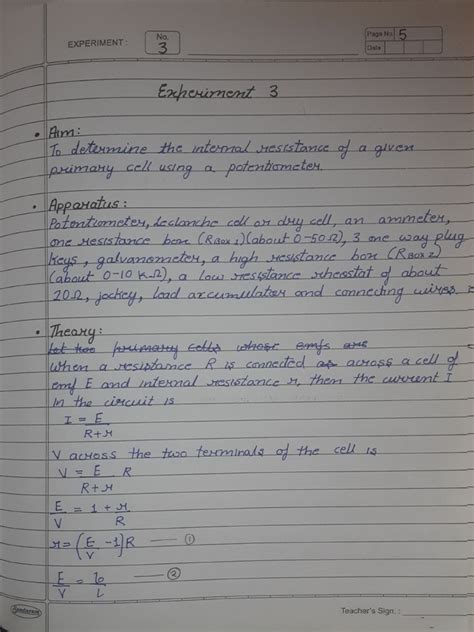 EXPERIMENT : No. 3 Page No. 5
Date
Experiment 3
• Aim:
To determine the internal resistance of a given
primary cell using a potentiometer
• Apparatus:
Potentiometer, Leclanche cell or dry cell, an ammeter,
one resistance box (RBOX 1) (about 0-50Ω), 3 one way plug
keys, galvanometer, a high resistance box (RBOX 2)
(about 0-10 KΩ), a low resistance rheostat of about
20Ω, jockey, lead accumulator and connecting wires
• Theory:
Let two primary cells whose emfs are
When a resistance R is connected as across a cell of
emf E and internal resistance r, then the current I
In the circuit is
I = E
R+r
V across the two terminals of the cell is
V = E R
R+r
E = 1 + r
V R
r = (E/V -1)R —— ①
E = lo —— ②
V L
Sundaram Teacher's Sign. :